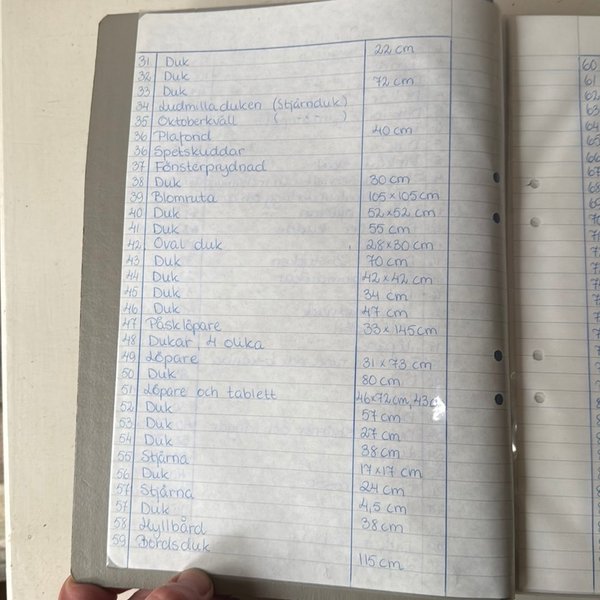 31 Duk 22 cm
32 Duk
33 Duk 72 cm
34 Ludmilladuken (Stjärnduk)
35 Oktoberkväll ( -"- )
36 Plafond 40 cm
36 Spetskuddar
37 Fönsterprydnad
38 Duk 30 cm
39 Blomruta 105×105 cm
40 Duk 52×52 cm
41 Duk 55 cm
42 Oval duk 28×30 cm
43 Duk 70 cm
44 Duk 42×42 cm
45 Duk 34 cm
46 Duk 47 cm
47 Påsklöpare 33×145 cm
48 Dukar, 4 olika
49 Löpare 31×73 cm
50 Duk 80 cm
51 Löpare och tablett 46×72 cm, 43 c
52 Duk 57 cm
53 Duk 27 cm
54 Duk 38 cm
55 Stjärna 17×17 cm
56 Duk 24 cm
57 Stjärna 4,5 cm
57 Duk 38 cm
58 Hyllbård
59 Bordsduk 115 cm
60
61
62
63
64
65
66
67
68
69